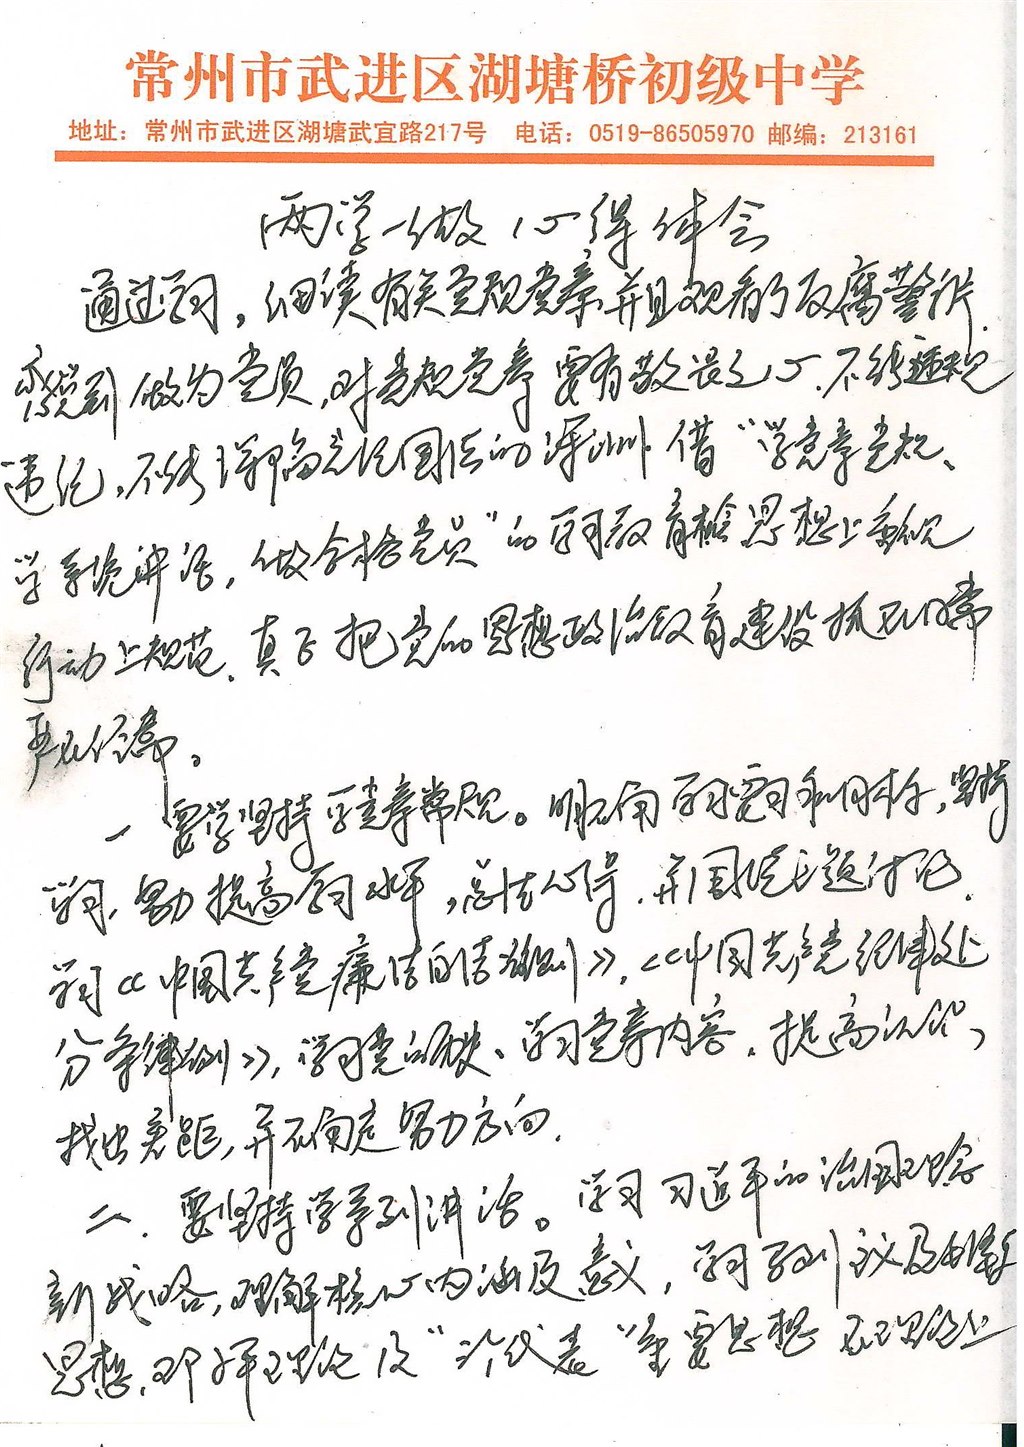 常州市武进区湖塘桥初级中学
地址：常州市武进区湖塘武宜路217号 电话：0519-86505970 邮编：213161
两学一做心得体会
通过学习，细读有关党规党章并且观看了反腐警示片.
感觉到做为党员，对党规党章要有敬畏之心、不能逾规
违纪，不能 党纪国法的 借“学党章党规、
学系统讲话，做合格党员”的学习教育 思想上
行动上规范、真正把党的思想政治教育建设抓在日常
严在经常。
一要学坚持学党章常规。明确学习 和目标，坚持
学习，努力提高学习水平，总结心得、并围绕专题讨论.
学习《中国共产党廉洁自律准则》，《中国共产党纪律处
分条律例》，学习党的历史、学习党章内容、提高认识，
找出差距，并确定努力方向.
二、要坚持学系列讲话。学习习近平的治国理念
新战略，理解核心内涵及意义，学习马列主义及毛泽东
思想、邓小平理论及“三个代表”重要思想 在理论上